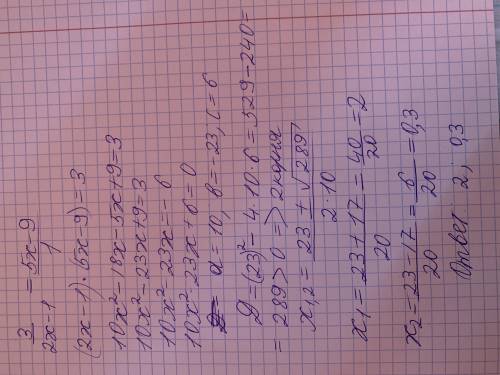 3/(2x-1) = (5x-9)/1
(2x-1)·(5x-9)=3
10x²-18x-5x+9=3
10x²-23x+9=3
10x²-23x=-6
10x²-23x+6=0
a=10, в=-23, c=6
D=(23)²-4·10·6=529-240=
=289>0 => 2 корня
x₁,₂ = (23±√289)/(2·10)
x₁=(23+17)/20=40/20=2
x₂=(23-17)/20=6/20=0,3
Ответ 2; 0,3